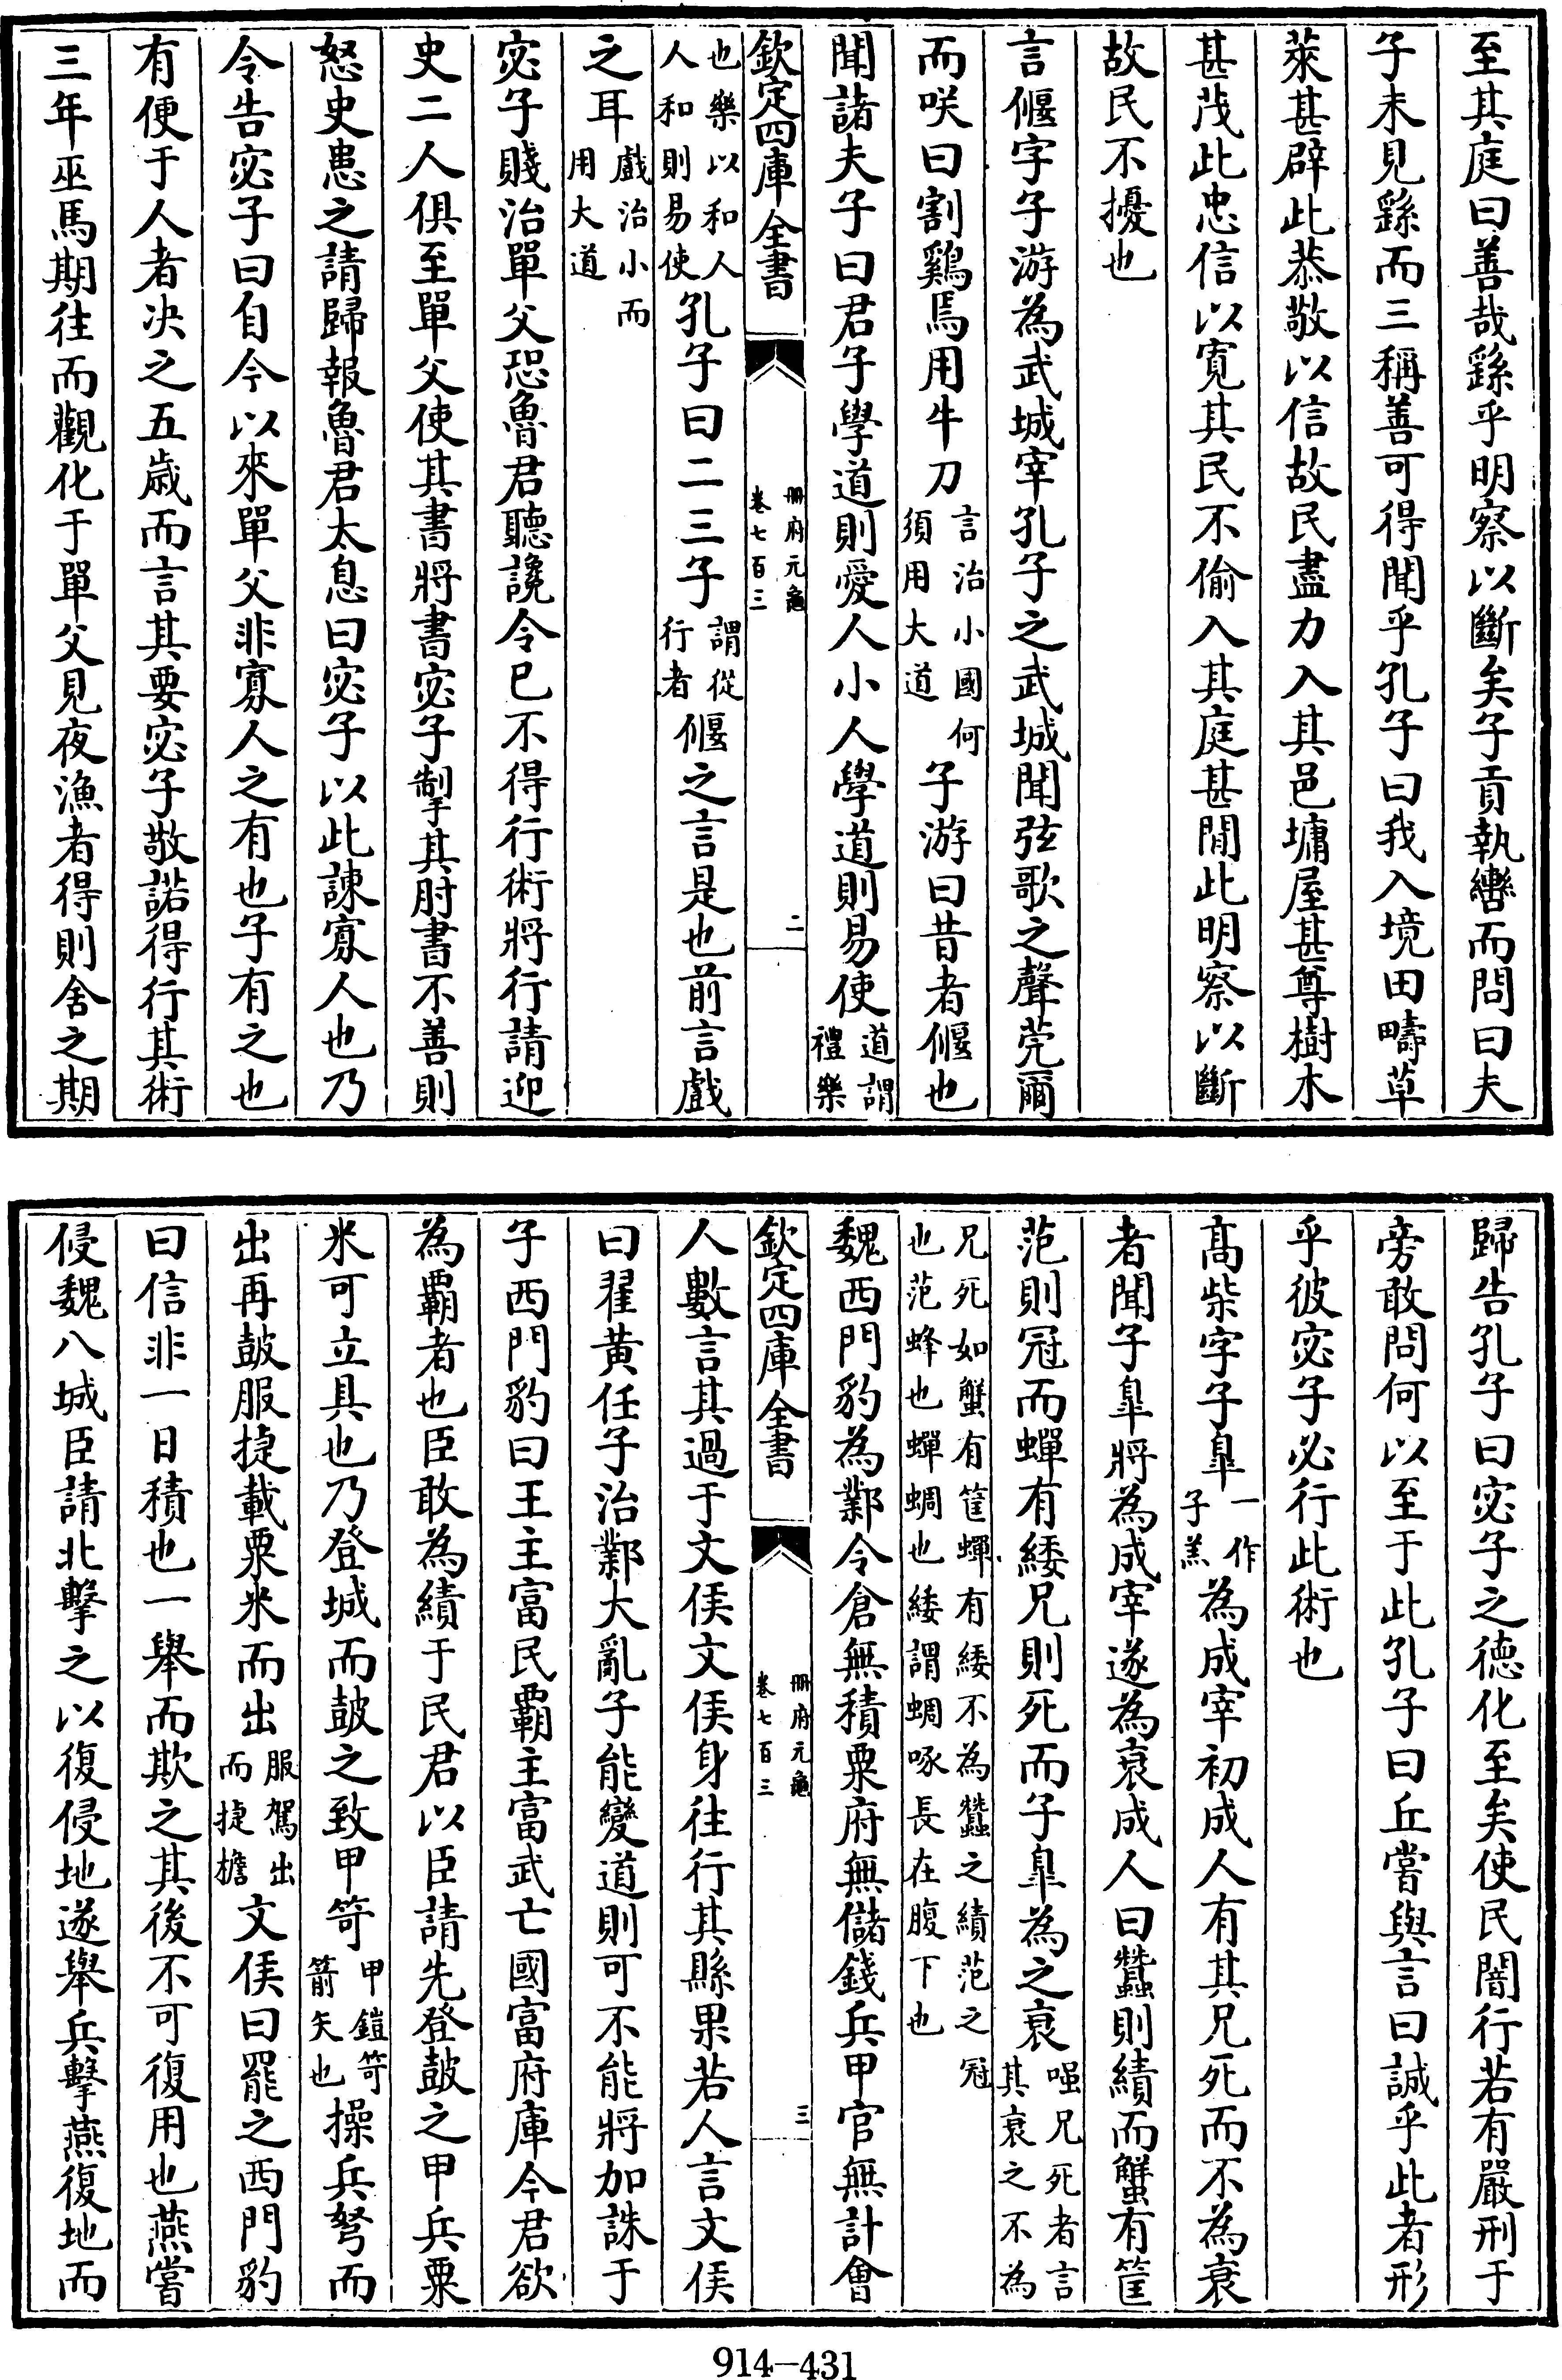 至其庭曰善哉繇乎明察以斷矣子貢執轡而問曰夫
子未見繇而三稱善可得聞乎孔子曰我入境田疇草
萊甚辟此恭敬以信故民盡力入其邑墉屋甚尊樹木
甚茂此忠信以寛其民不偷入其庭甚閒此明察以斷
故民不擾也
言偃字子游為武城宰孔子之武城聞弦歌之聲莞爾
而咲曰割鷄焉用牛刀言治小國何須用大道子游曰昔者偃也
聞諸夫子曰君子學道則愛人小人學道則易使道謂禮樂
欽定四庫全書 冊府元龜卷七百三 二
也樂以和人人和則易使孔子曰二三子謂從行者偃之言是也前言戲
之耳戲治小而用大道
宓子賤治單父恐魯君聽讒令已不得行術將行請迎
史二人俱至單父使其書將書宓子掣其肘書不善則
怒史患之請歸報魯君太息曰宓子以此諫寡人也乃
令告宓子曰自今以來單父非寡人之有也子有之也
有便于人者决之五歲而言其要宓子敬諾得行其術
三年巫馬期往而觀化于單父見夜漁者得則舍之期
歸告孔子曰宓子之德化至矣使民闇行若有嚴刑于
旁敢問何以至于此孔子曰丘嘗與言曰誠乎此者形
乎彼宓子必行此術也
高柴字子臯一作子羔為成宰初成人有其兄死而不為衰
者聞子臯將為成宰遂為衰成人曰蠶則績而蟹有筐
范則冠而蟬有緌兄則死而子臯為之衰嗤兄死者言其衰之不為
兄死如蟹有筐蟬有緌不為蠶之績范之冠也范蜂也蟬蜩也緌謂蜩啄長在腹下也
魏西門豹為鄴令倉無積粟府無儲錢兵甲官無計會
欽定四庫全書 冊府元龜卷七百三 三
人數言其過于文侯文侯身往行其縣果若人言文侯
曰翟黄任子治鄴大亂子能變道則可不能將加誅于
子西門豹曰王主富民覇主富武亡國富府庫今君欲
為覇者也臣敢為績于民君以臣請先登鼓之甲兵粟
米可立具也乃登城而鼓之致甲笴甲鎧笴箭矢也操兵弩而
出再鼓服捷載粟米而出服駕出而捷檐文侯曰罷之西門豹
曰信非一日積也一舉而欺之其後不可復用也燕嘗
侵魏八城臣請北擊之以復侵地遂舉兵擊燕復地而
914-431